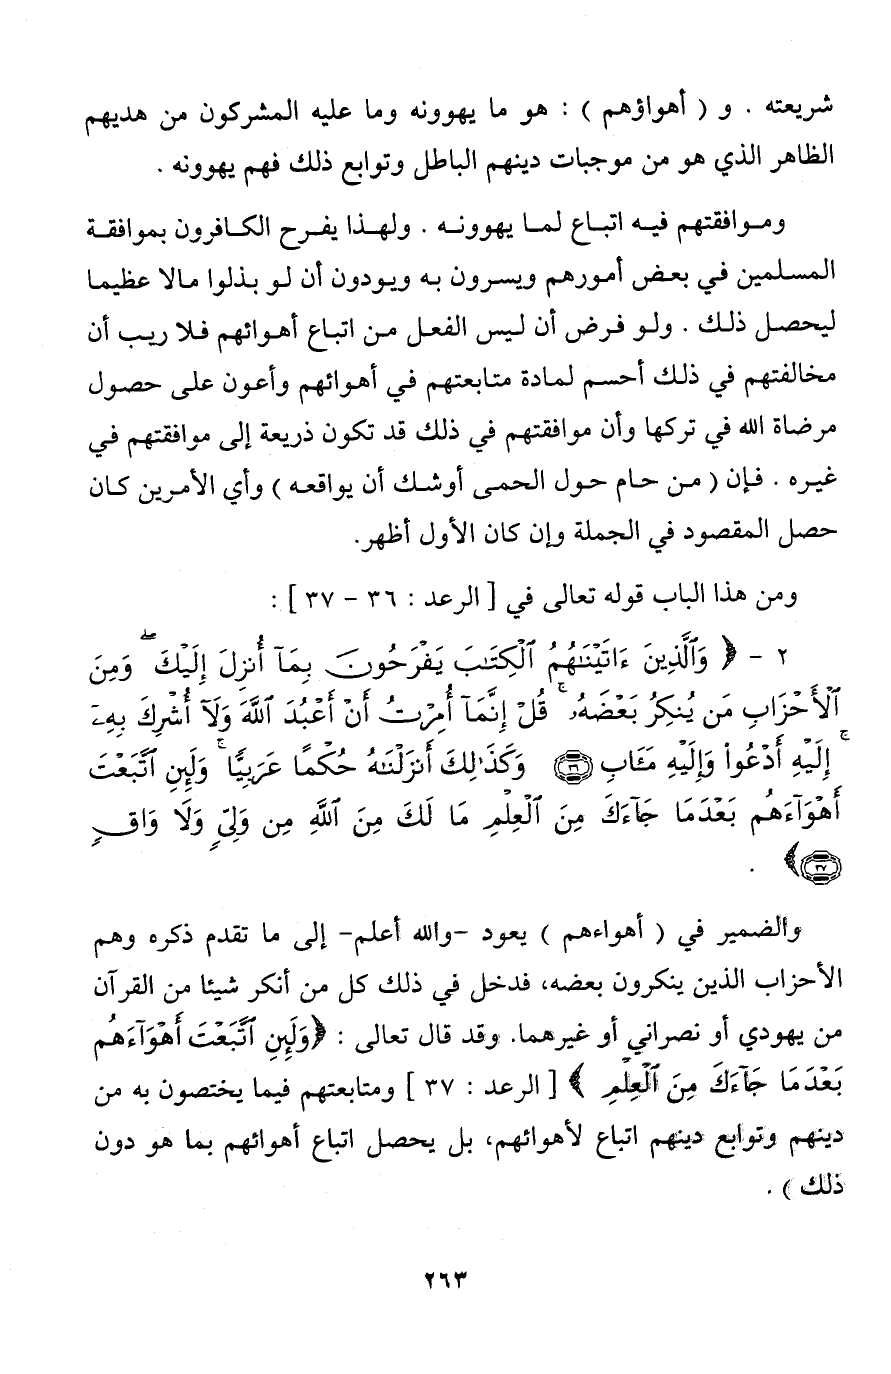 شريعته . و ( أهواؤهم ) : هو ما يهوونه وما عليه المشركون من هديهم
الظاهر الذي هو من موجبات دينهم الباطل وتوابع ذلك فهم يهوونه .
وموافقتهم فيه اتباع لما يهوونه . ولهذا يفرح الكافرون بموافقة
المسلمين في بعض أمورهم ويسرون به ويودون أن لو بذلوا مالا عظيما
ليحصل ذلك . ولو فرض أن ليس الفعل من اتباع أهوائهم فلا ريب أن
مخالفتهم في ذلك أحسم لمادة متابعتهم في أهوائهم وأعون على حصول
مرضاة الله في تركها وأن موافقتهم في ذلك قد تكون ذريعة إلى موافقتهم في
غيره . فإن ( من حام حول الحمى أوشك أن يواقعه ) وأي الأمرين كان
حصل المقصود في الجملة وإن كان الأول أظهر.
ومن هذا الباب قوله تعالى في [ الرعد : ٣٦ - ٣٧ ] :
٢ - ﴿ وَٱلَّذِينَ ءَاتَيْنَـٰهُمُ ٱلْكِتَـٰبَ يَفْرَحُونَ بِمَآ أُنزِلَ إِلَيْكَ ۖ وَمِنَ
ٱلْأَحْزَابِ مَن يُنكِرُ بَعْضَهُۥ ۚ قُلْ إِنَّمَآ أُمِرْتُ أَنْ أَعْبُدَ ٱللَّهَ وَلَآ أُشْرِكَ بِهِۦٓ ۚ
إِلَيْهِ أَدْعُوا۟ وَإِلَيْهِ مَـَٔابِ ٣٦ وَكَذَٰلِكَ أَنزَلْنَـٰهُ حُكْمًا عَرَبِيًّا ۚ وَلَئِنِ ٱتَّبَعْتَ
أَهْوَآءَهُم بَعْدَمَا جَآءَكَ مِنَ ٱلْعِلْمِ مَا لَكَ مِنَ ٱللَّهِ مِن وَلِىٍّ وَلَا وَاقٍ
٣٧ ﴾ .
والضمير في ( أهواءهم ) يعود -والله أعلم- إلى ما تقدم ذكره وهم
الأحزاب الذين ينكرون بعضه، فدخل في ذلك كل من أنكر شيئا من القرآن
من يهودي أو نصراني أو غيرهما. وقد قال تعالى : ﴿وَلَئِنِ ٱتَّبَعْتَ أَهْوَآءَهُم
بَعْدَمَا جَآءَكَ مِنَ ٱلْعِلْمِ ﴾ [ الرعد : ٣٧ ] ومتابعتهم فيما يختصون به من
دينهم وتوابع دينهم اتباع لأهوائهم، بل يحصل اتباع أهوائهم بما هو دون
ذلك ) .
٢٦٣